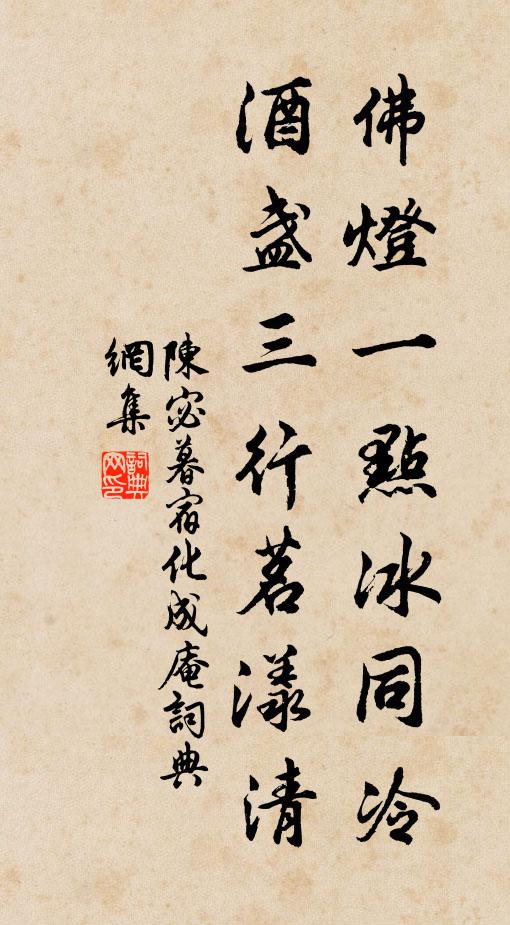 佛燈一點冰同冷
酒盞三行茗漾清
陳宓暮宿化成庵詞典
網集
詞典網印